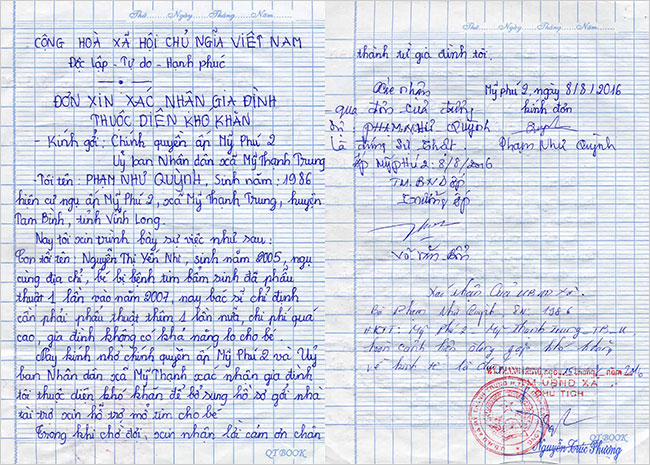 Thứ......Ngày......Tháng......Năm......
CỘNG HOÀ XÃ HỘI CHỦ NGĨA VIỆT NAM
Độc lập - Tự do - Hạnh phúc
ĐƠN XIN XÁC NHÂN GIA ĐÌNH
THUỘC DIÊN KHÓ KHĂN
- Kính gởi: Chính quyền ấp Mỹ Phú 2
Uỷ ban Nhân dân xã Mỹ Thạnh Trung
- Tôi tên: PHẠM NHƯ QUỲNH, Sinh năm: 1986
hiện cư ngụ ấp Mỹ Phú 2, xã Mỹ Thạnh Trung, huyện
Tam Bình, tỉnh Vĩnh Long.
Nay tôi xin trình bày sự việc như sau:
Con tôi tên: Nguyễn Thị Yến Nhi, sinh năm 2005, ngụ
cùng địa chỉ, bé bị bệnh tim bẩm sinh đã phẩu
thuật 1 lần vào năm 2007, nay bác sĩ chỉ định
cần phải phẩu thuật thêm 1 lần nữa, chi phí quá
cao, gia đình không có khả năng lo cho bé.
Nay kính nhờ chính quyền ấp Mỹ Phú 2 và Uỷ
ban Nhân dân xã Mỹ Thạnh xác nhân gia đình
tôi thuộc diên khó khăn để bổ sung hồ sơ gởi nhà
tài trợ xin hỗ trợ mổ tim cho bé
Trong khi chờ đợi, xin nhân lời cám ơn chân
QTBOOK
Thứ......Ngày......Tháng......Năm......
thành từ gia đình tôi.
Xác nhận Mỹ phú 2, ngày 8/8/2016
qua đơn của đương kính đơn
sự: PHẠM NHƯ QUỲNH
Là đúng sự thật. Phạm Như Quỳnh
ấp Mỹ phú 2: 8/8/2016
TM. BND ấp
Trưởng ấp
Võ Văn
Xác nhận của UBND xã
Phạm Như Quỳnh SN: 1986
HKTT: Mỹ Phú 2 - Mỹ Thạnh Trung - TB
hoàn cảnh khó khăn
về kinh tế là đúng
ngày 15 tháng 8 năm 2016
TM UBND XÃ
CHỦ TỊCH
Nguyễn Trúc Phương
QTBOOK